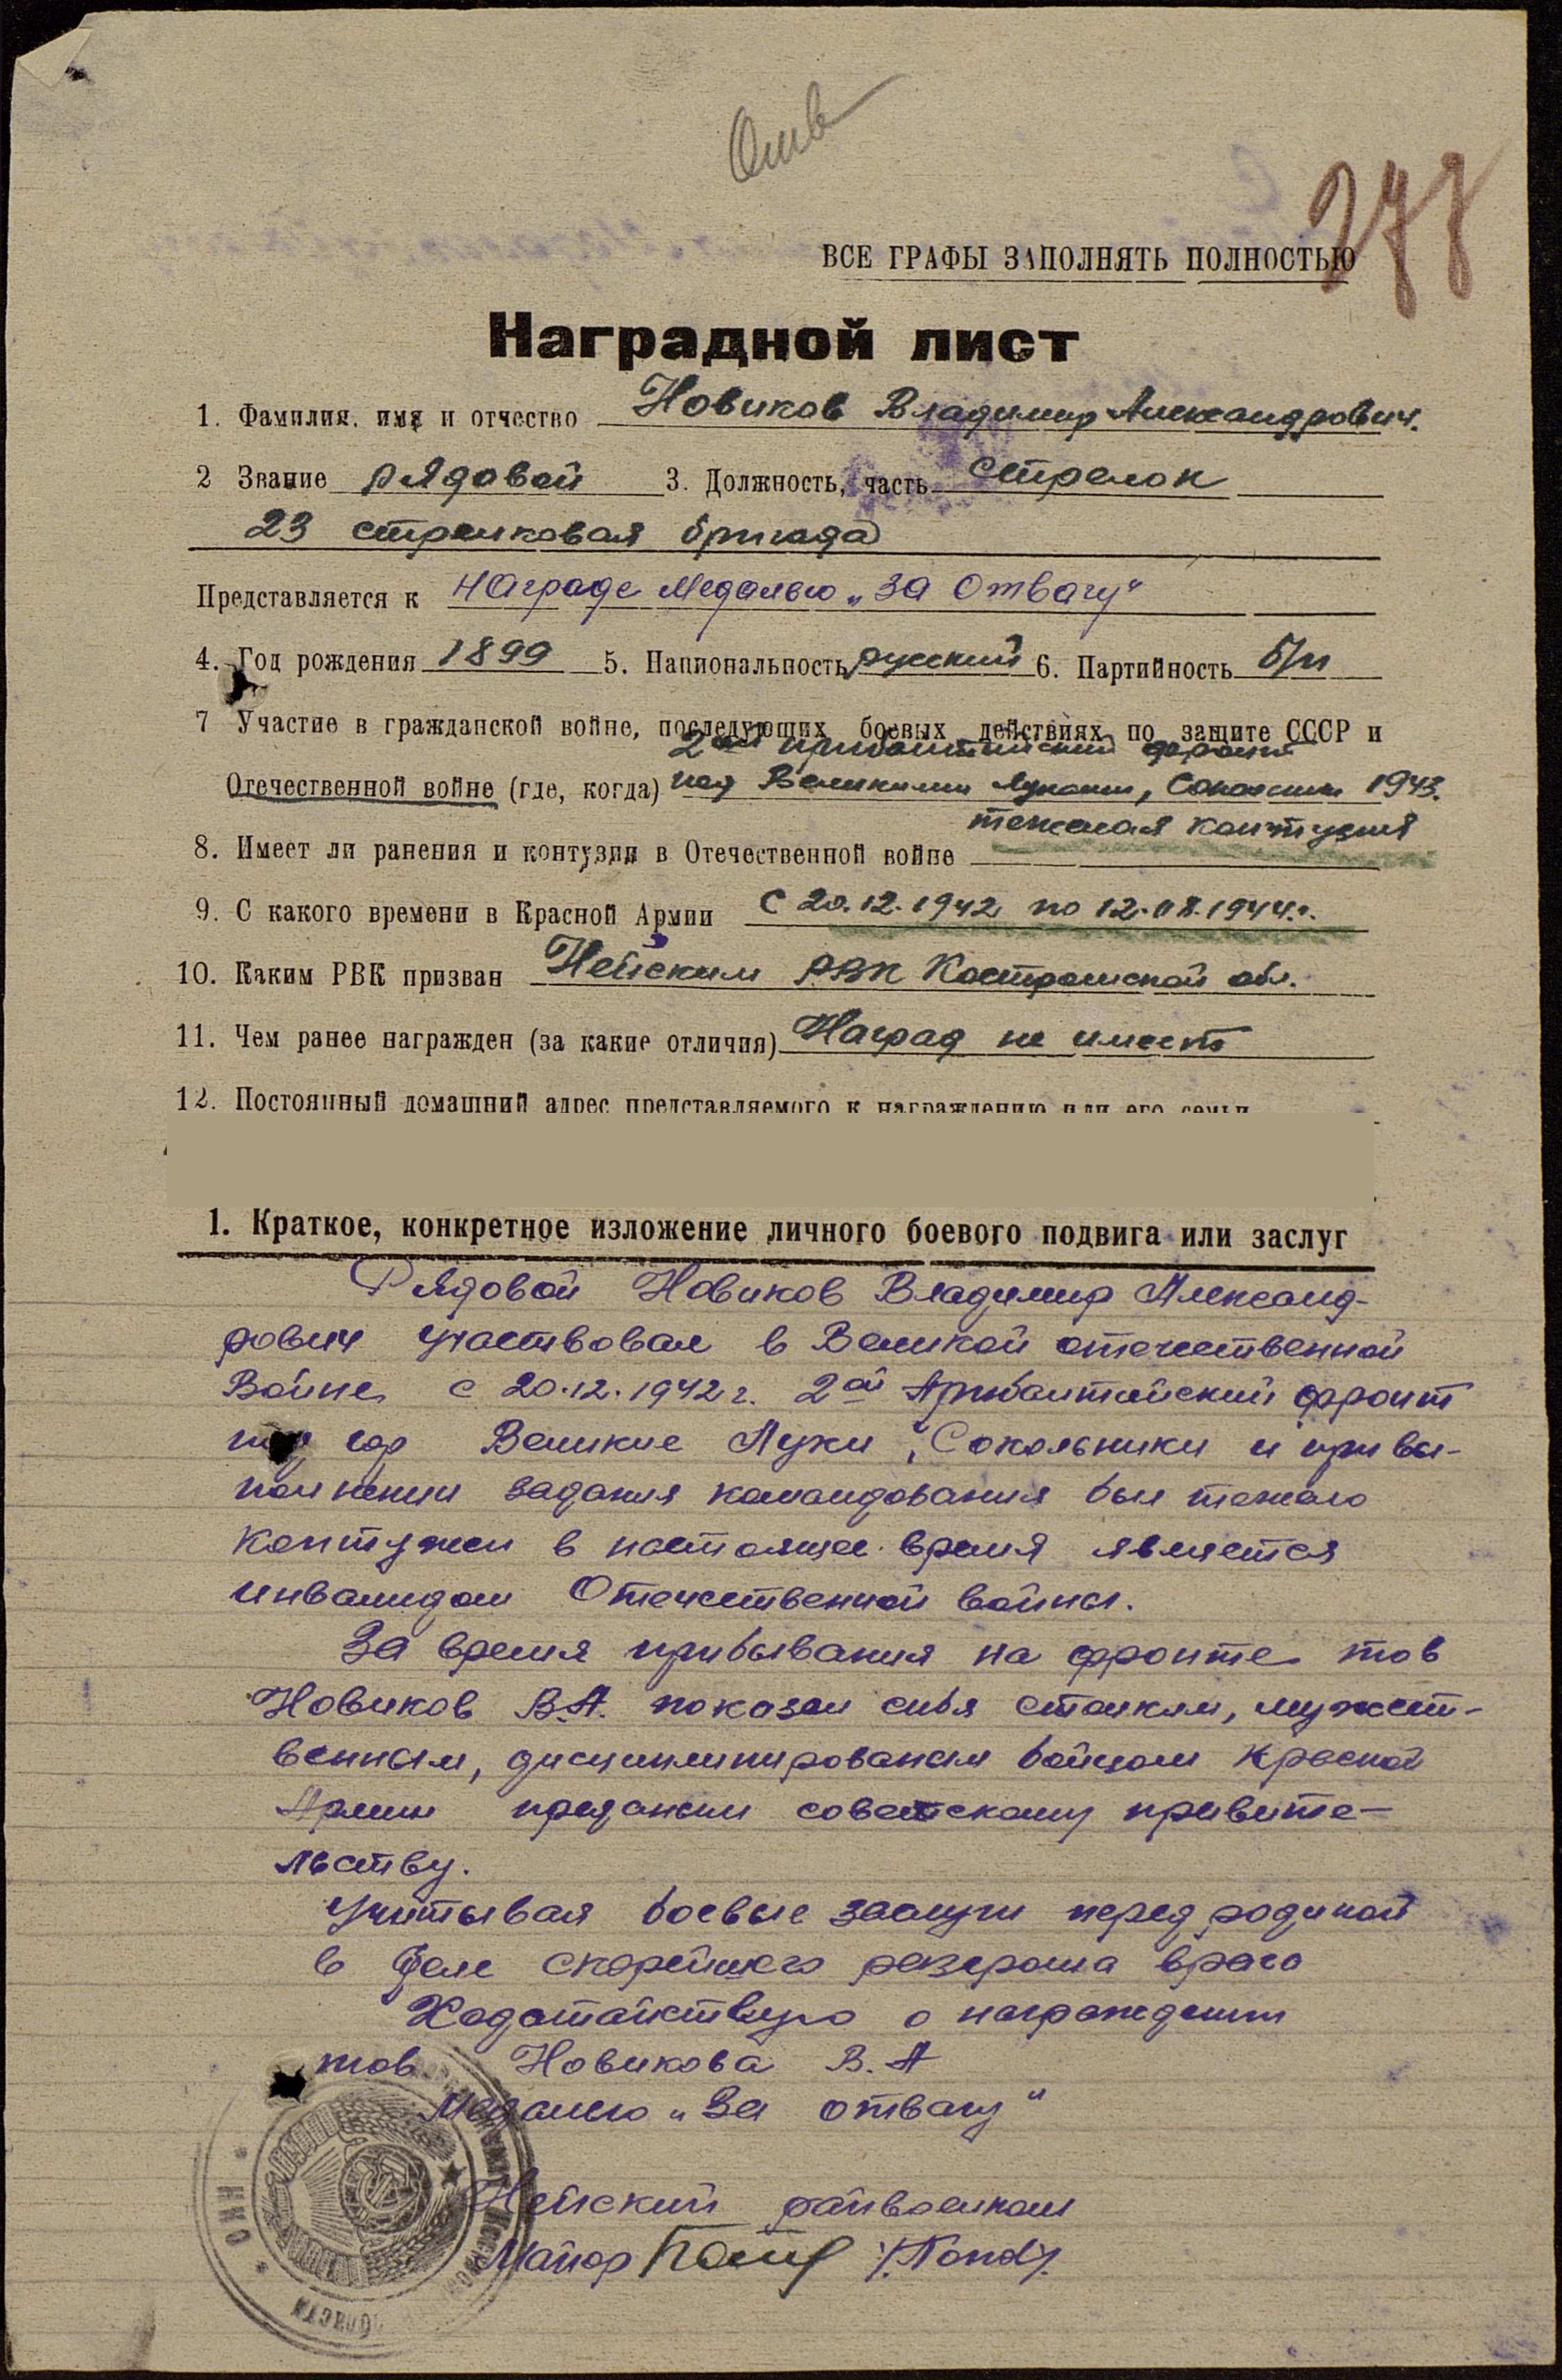 Отв
277
ВСЕ ГРАФЫ ЗАПОЛНЯТЬ ПОЛНОСТЬЮ
Наградной лист
1. Фамилия, имя и отчество Новиков Владимир Александрович.
2 Звание рядовой 3. Должность, часть стрелок
23 стрелковая бригада
Представляется к награде медалью „За Отвагу“
4. Год рождения 1899 5. Национальность русский 6. Партийность б/п
7 Участие в гражданской войне, последующих боевых действиях по защите СССР и
2ой прибалтийский фронт
Отечественной войне (где, когда) под Великими Луками, 1943.
8. Имеет ли ранения и контузии в Отечественной войне тежелая контузия
9. С какого времени в Красной Армии С 20.12.1942 по 12.08.1944 г.
10. Каким РВК призван Нейским РВК Костромской обл.
11. Чем ранее награжден (за какие отличия) Наград не имеет
12. Постоянный домашний адрес представляемого к награждению или его семьи
1. Краткое, конкретное изложение личного боевого подвига или заслуг
Рядовой Новиков Владимир Александ-
рович участвовал в Великой отечественной
Войне с 20.12.1942 г. 2ой Прибалтийский фронт
под гор Великие Луки, Сокольники и при вы-
полнении задания командования был тежело
контужен в настоящее время является
инвалидом Отечественной войны.
За время прибывания на фронте тов
Новиков В.А. показал себя стойким, мужест-
венным, дисциплинированым бойцом Красной
Армии преданым советскому правите-
льству.
Учитывая боевые заслуги перед родиной
в деле скорейшего разгрома врага
Ходотайствую о награждении
тов Новикова В.А
Медалью „За отвагу“
Нейский райвоенком
Майор /Попов/.
НКО
ОБЛАСТИ